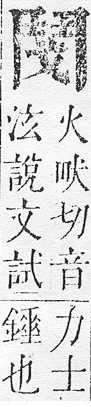 火吠切音
泫說文試
力士
錘也